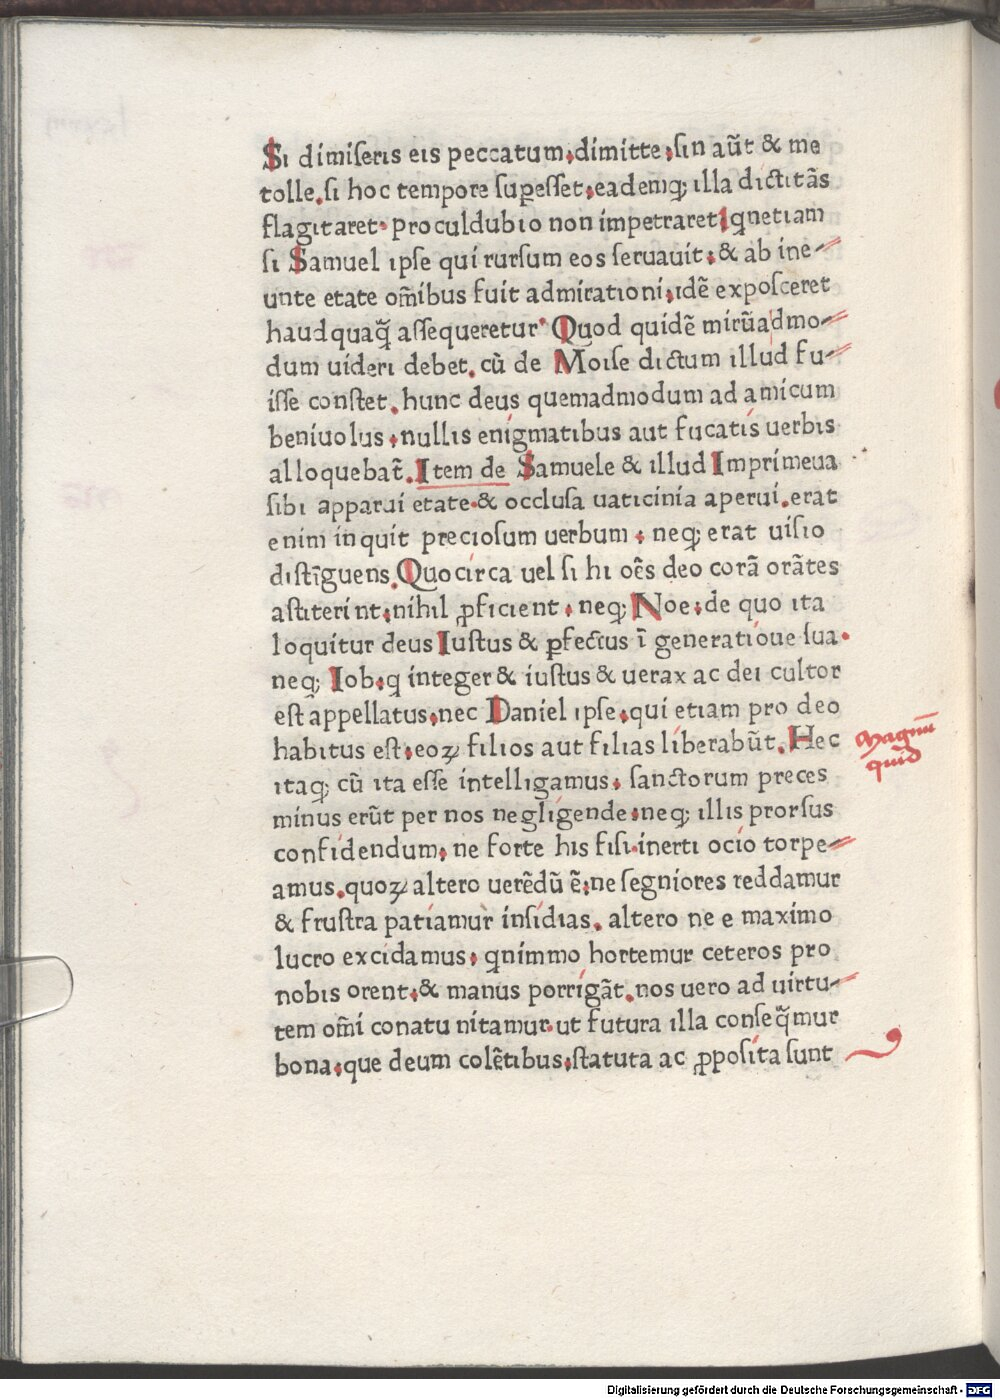 Si dimiseris eis peccatum, dimitte, sin aũt & me
tolle. si hoc tempore suꝑesset, eademq; illa dictitãs
flagitaret. proculdubio non impetraret, qnetiam
si Samuel ipse qui rursum eos seruauit, & ab ine-
unte etate om̃ibus fuit admirationi, idẽ exposceret
haud quaq̃ assequeretur. Quod quidẽ mirũ admo-
dum uideri debet. cũ de Moise dictum illud fu-
isse constet. hunc deus quemadmodum ad amicum
beniuolus, nullis enigmatibus aut fucatis uerbis
alloquebat̃. Item de Samuele & illud Imprimeua
sibi apparui etate. & occlusa uaticinia aperui. erat
enim inquit preciosum uerbum, neq; erat uisio
distĩguens. Quocirca uel si hi oẽs deo corã orãtes
astiterint, nihil ꝓficient, neq; Noe, de quo ita
loquitur deus Iustus & ꝑfectus ĩ generatioue sua.
neq; Iob, q integer & iustus & uerax ac dei cultor
est appellatus, nec Daniel ipse, qui etiam pro deo
habitus est, eoꝝ filios aut filias liberabũt. Hec
itaq; cũ ita esse intelligamus, sanctorum preces
minus erũt per nos negligende, neq; illis prorsus
confidendum, ne forte his fisi. inerti ocio torpe-
amus. quoꝝ altero uerẽdũ ẽ, ne segniores reddamur
& frustra patiamur insidias. altero ne e maximo
lucro excidamus, qnimmo hortemur ceteros pro
nobis orent, & manus porrigãt. nos uero ad uirtu-
tem om̃i conatu nitamur. ut futura illa conseq̃mur
bona, que deum colẽtibus, statuta ac ꝓposita sunt
Magnũ
quid
Digitalisierung gefördert durch die Deutsche Forschungsgemeinschaft - DFG